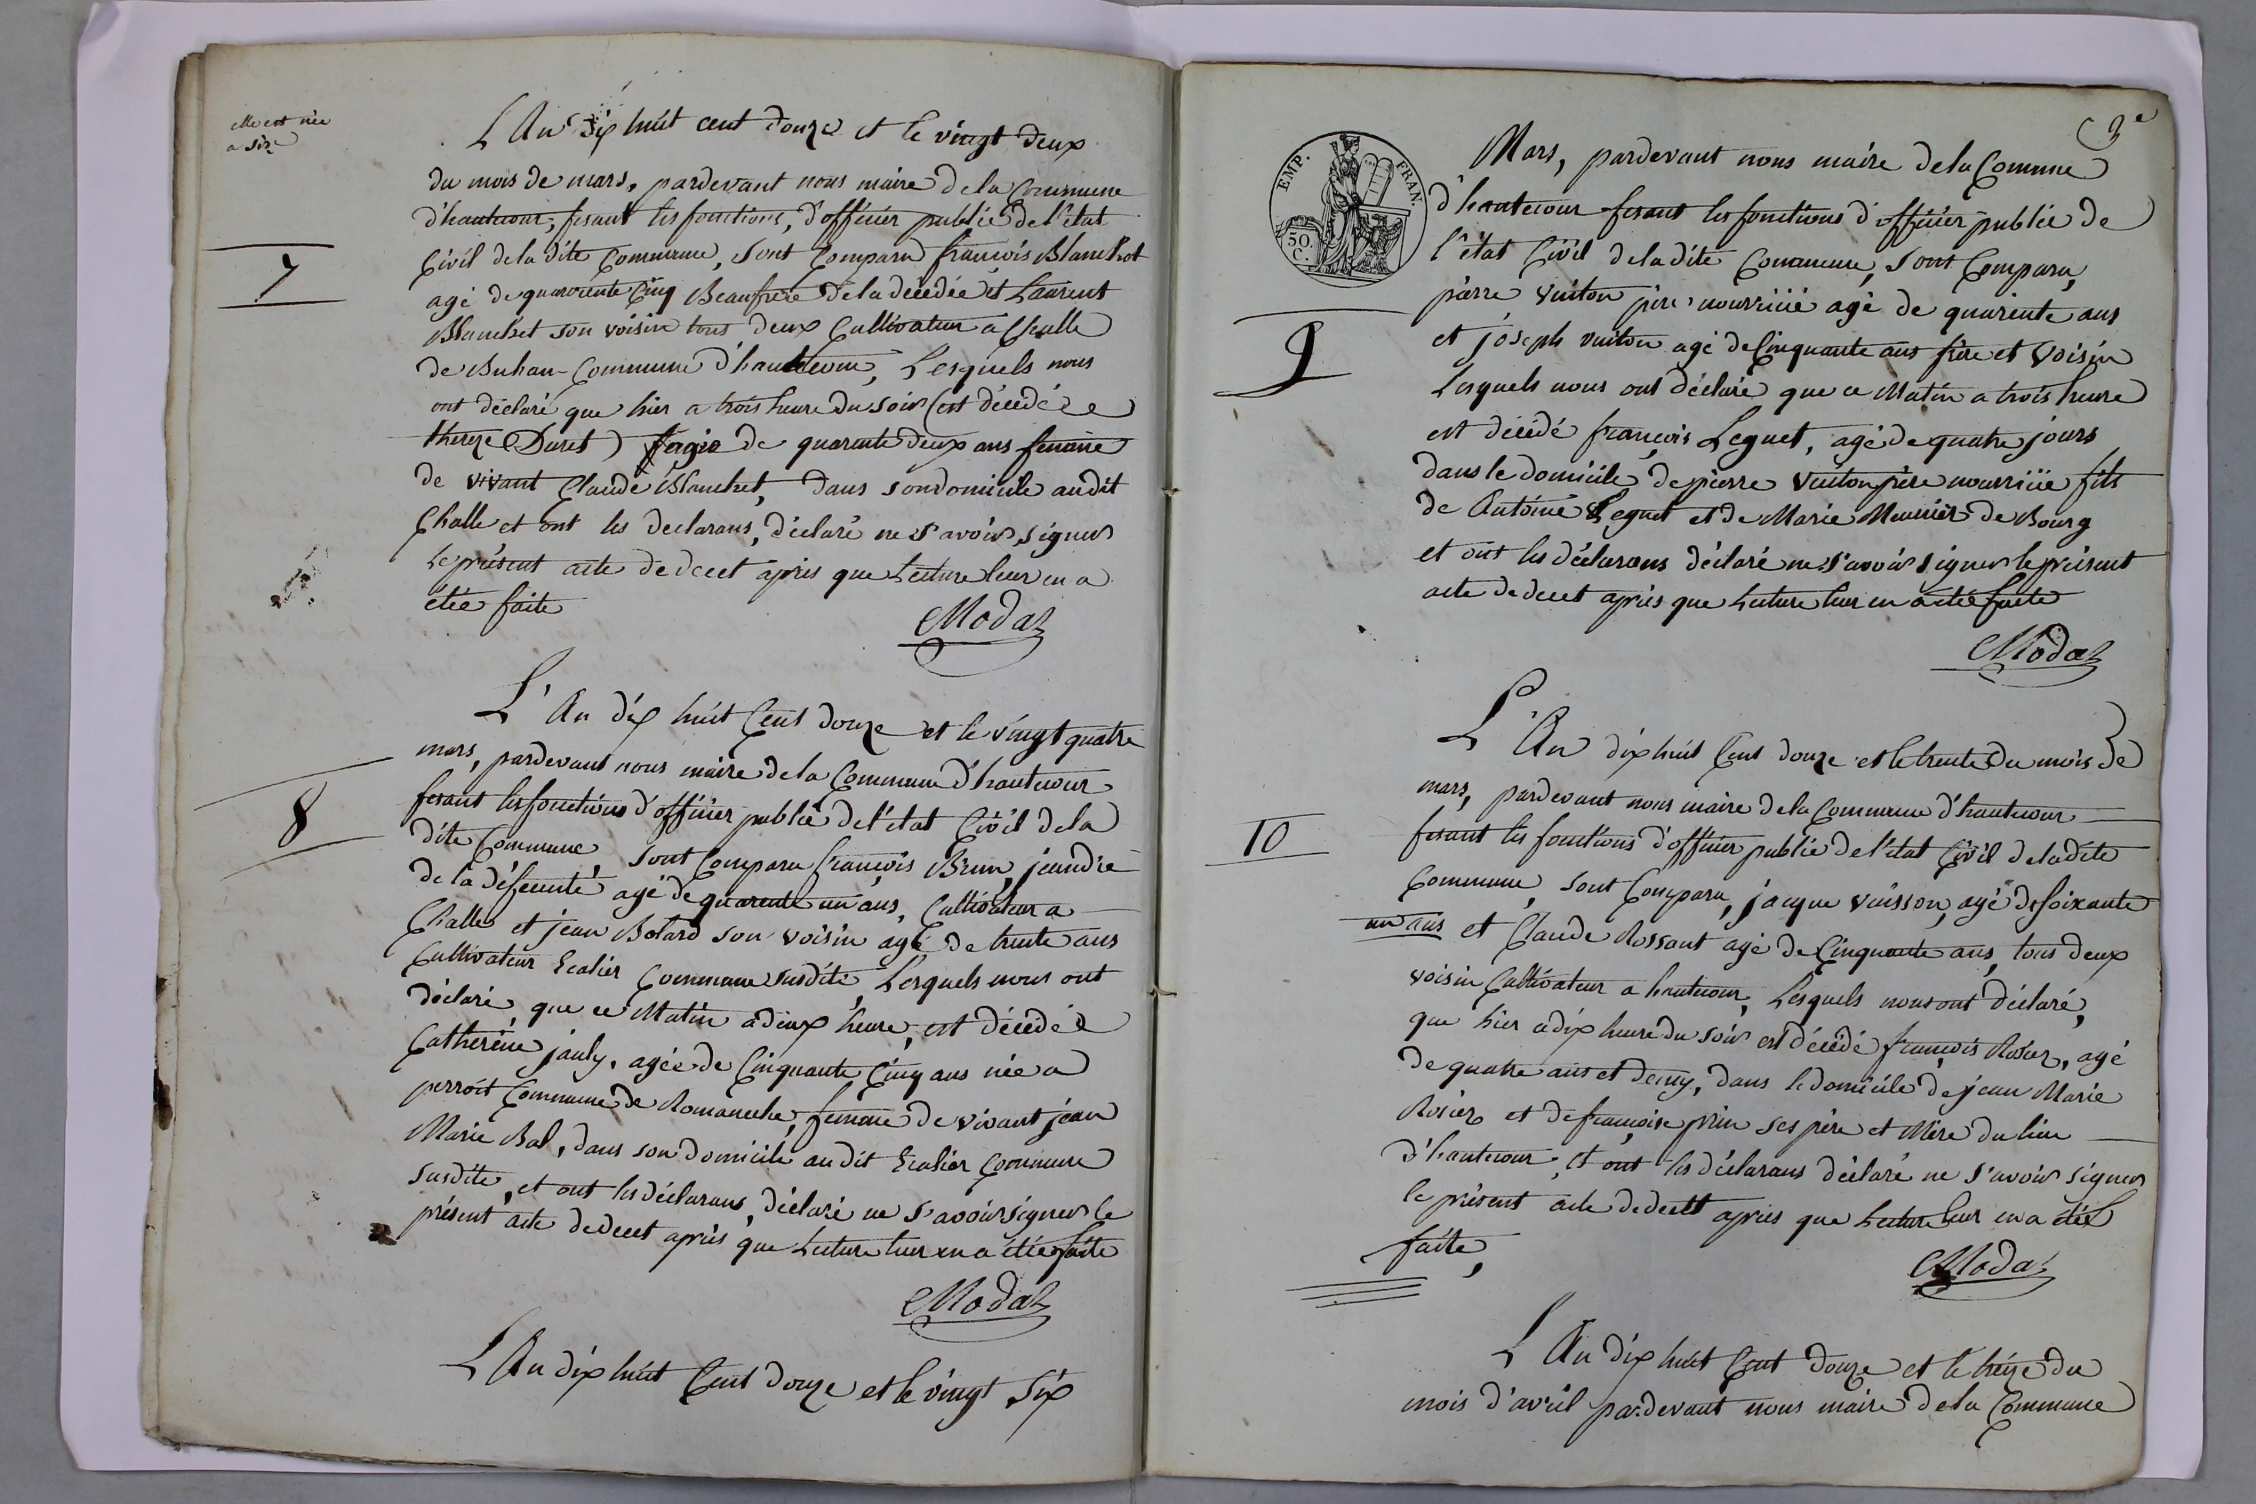 elle est née
a size
L'An dix huit cent douze et le vingt deux
du mois de mars, pardevant nous maire de la Commune
d'hautecour, fesant les fonctions, d'officier publié de l'état
7
Civil de la dite Commune, sont Comparu françois Blanchet
agé de quarente Cinq Beaufrere de la décédée et Laurent
Blanchet son voisin tous deux Cultivateur a Challe
de Buhan Commune d'hautecour, Lesquels nous
ont déclaré que hier a trois heure du soir est décédée
thereze Duret) agée de quarante deux ans femme
de vivant Claude Blanchet, dans son domicile au dit
Challe et ont les declarans, déclaré ne s'avoir signer
le présent acte de decet après que Lecture leur en a
étée faite
Modaz
L'An dix huit Cent douze et le vingt quatre
mars, pardevant nous maire de la Commune d'hautecour
fesant les fonctions d'officier publié de l'etat Civil de la
8
dite Commune, sont Comparu françois Brun, jeandre
de la défeunte agé de quarente un ans, Cultivateur a
Challe et jean Bolard son voisin agé de trente ans
Cultivateur Ecalier Commune susdite, Lesquels nous ont
déclaré, que ce Matin a deux heure, est décédée
Catherine jauly, agée de Cinquante Cinq ans née a
perroit Commune de Romaneche, femme de vivant jean
Marie Bal, dans son domicile au dit Ecalier Commune
susdite, et ont les déclarans, déclaré ne s'avoir signer le
présent acte de decet après que Lecture leur en a étée faite
Modaz
L'An dix huit Cent douze et le vingt Six
3e
EMP. FRAN.
50. C.
Mars, pardevant nous maire de la Comune
d'hautecour fesant les fonctions d'officier publié de
l'état Civil de la dite Commune, sont Comparu,
pierre vuiton père nourricié agé de quarente ans
9
et joseph vuiton agé de Cinquante ans frère et voisin
Lesquels nous ont déclaré que ce Matin a trois heure
est décédé françois Leguet, agé de quatre jours
dans le domicile de pierre vuiton père nourricié fils
de Antoine Leguet et de Marie Meunier de Bourg
et ont les déclarans déclaré ne s'avoir signer le présent
acte de decet après que Lecture leur en a étée faite
Modaz
L'An dix huit Cent douze et le trente du mois de
mars, pardevant nous maire de la Commune d'hautecour
10
fesant les fonctions d'officier publié de l'etat Civil de la dite
Commune, sont Comparu, jacque vuisson, agé de soixante
un ans et Claude Rossant agé de Cinquante ans, tous deux
voisin Cultivateur a hautecour, Lesquels nous ont déclaré,
que hier a dix heure du soir est décédé françois Rosier, agé
de quatre ans et demy, dans le domicile de jean Marie
Rosier et de françoise prin ses père et Mère du lieu
d'hautecour, et ont les déclarans déclaré ne s'avoir signer
le présent acte de decett après que Lecture leur en a étéé
faite,
Modaz
L'An dix huit Cent douze et le treize du
mois d'avril pardevant nous maire de la Commune